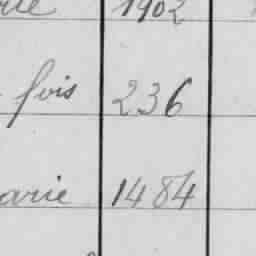 1902
fois 236
arie 1484